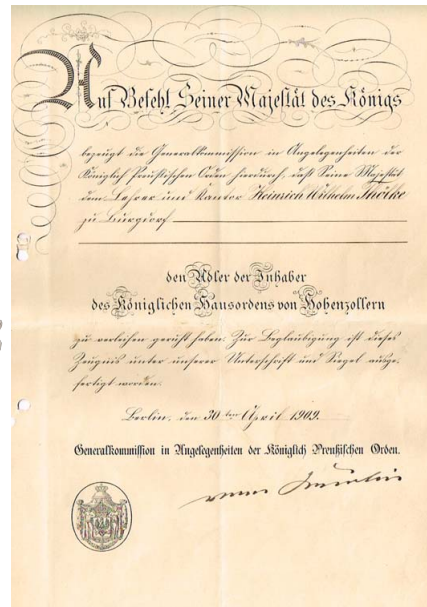 Auf Befehl Seiner Majestät des Königs
bezeugt die Generalkommission in Angelegenheiten der
Königlich Preußischen Orden hierdurch, daß Seine Majestät
dem Lehrer und Kantor Heinrich Wilhelm Thölke
zu Burgdorf
den Adler der Inhaber
des Königlichen Hausordens von Hohenzollern
zu verleihen geruht haben. Zur Beglaubigung ist dieses
Zeugnis unter unserer Unterschrift und Siegel ausge-
fertigt worden.
Berlin, den 30 ten April 1909.
Generalkommission in Angelegenheiten der Königlich Preußischen Orden.